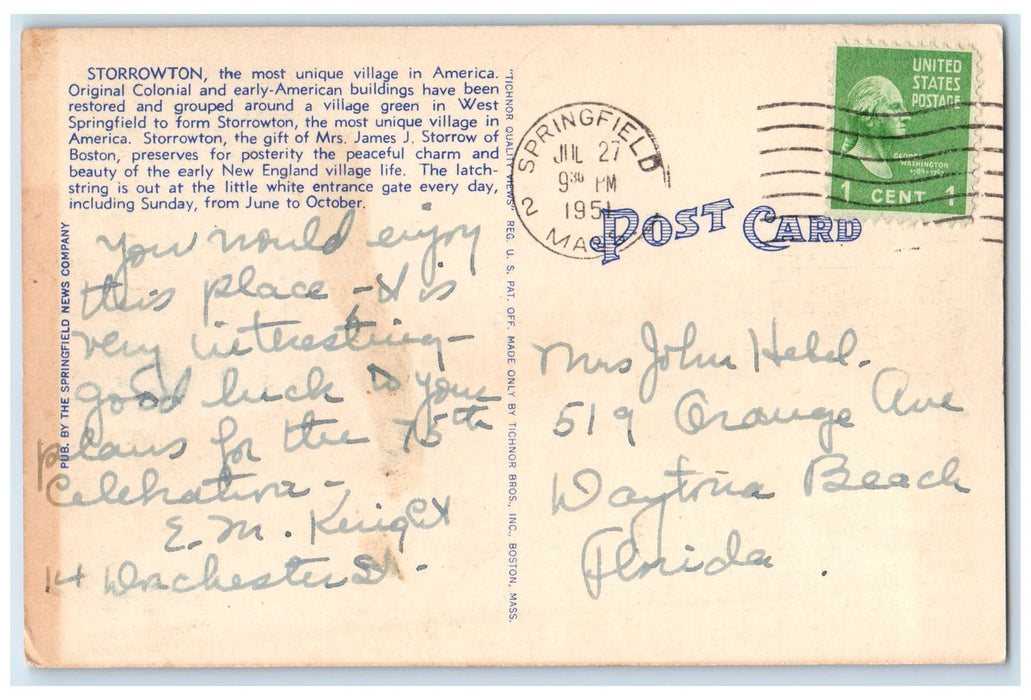 STORROWTON, the most unique village in America.
Original Colonial and early-American buildings have been
restored and grouped around a village green in West
Springfield to form Storrowton, the most unique village in
America. Storrowton, the gift of Mrs. James J. Storrow of
Boston, preserves for posterity the peaceful charm and
beauty of the early New England village life. The latch-
string is out at the little white entrance gate every day,
including Sunday, from June to October.
You would enjoy
this place - It is
very interesting -
good luck to your
plans for the 75th
Celebration -
E. M. Knight
14 Dorchester St.
PUB. BY THE SPRINGFIELD NEWS COMPANY
"TICHNOR QUALITY VIEWS" REG. U. S. PAT. OFF. MADE ONLY BY TICHNOR BROS., INC., BOSTON, MASS.
SPRINGFIELD
JUL 27
9 30 PM
1951
2 MASS.
UNITED
STATES
POSTAGE
GEORGE
WASHINGTON
1789-1797
1 CENT 1
POST CARD
Mrs John Hebel.
519 Orange Ave
Daytona Beach
Florida.